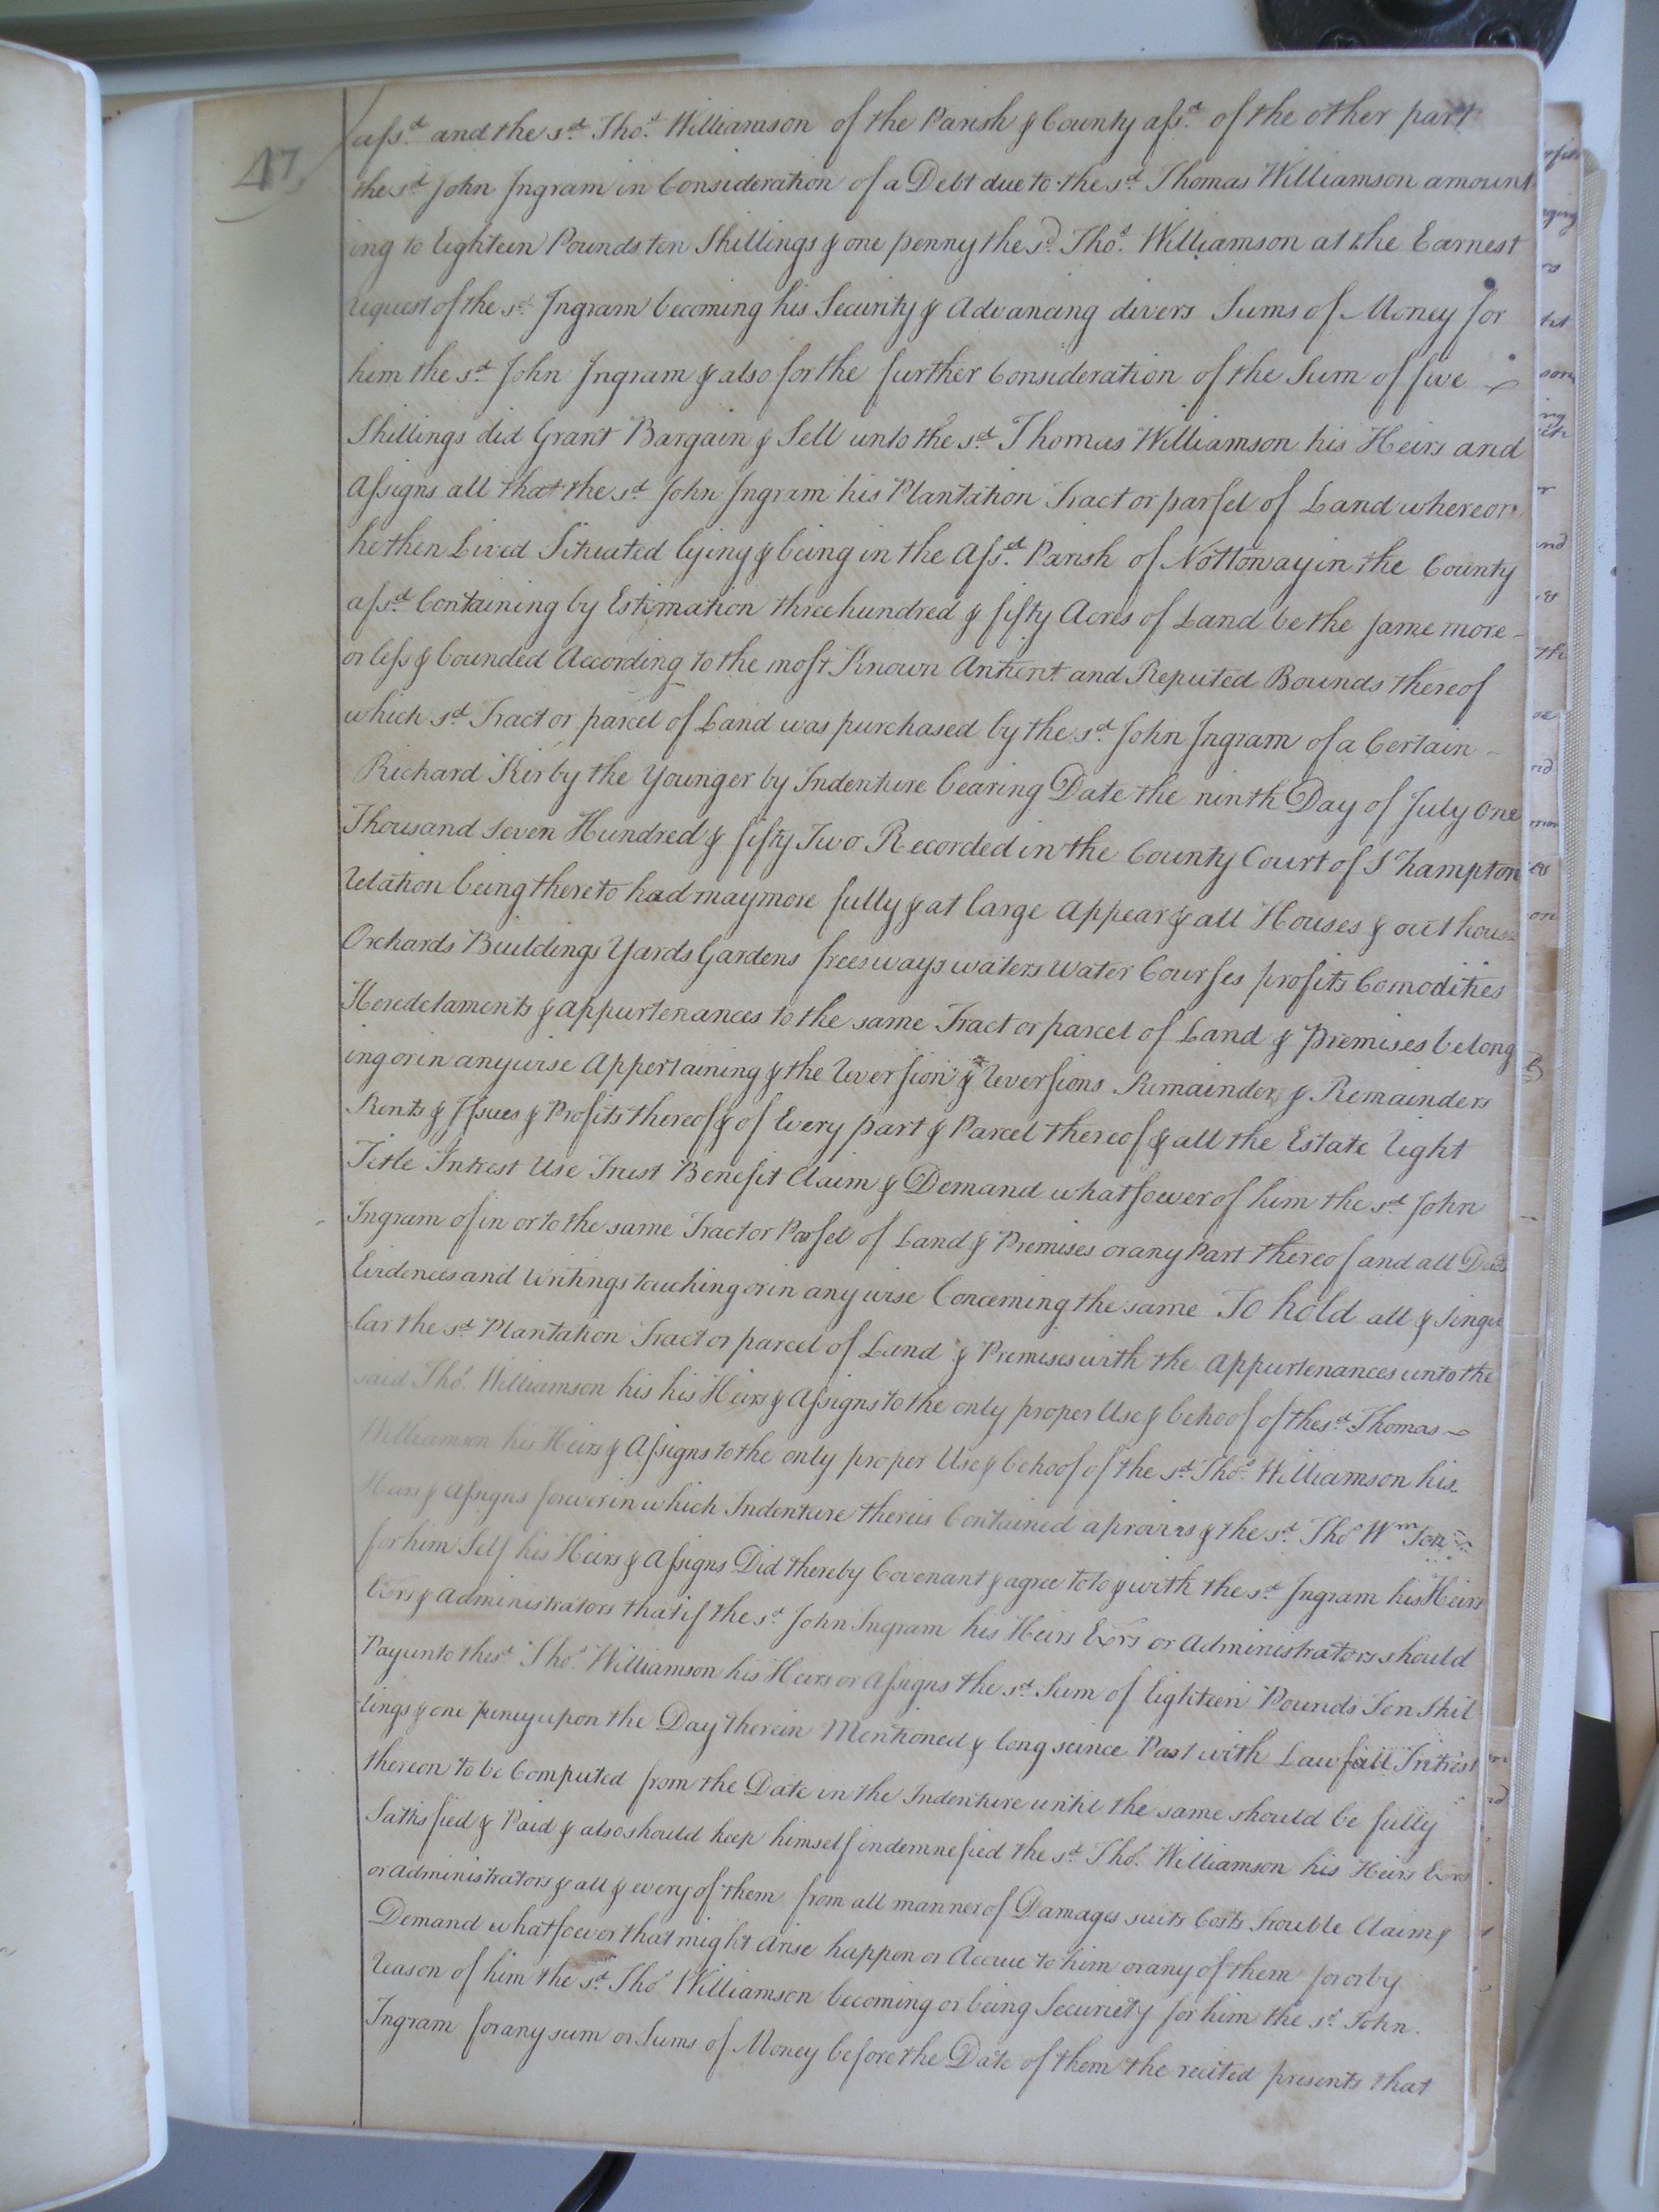 47
afsd. and the sd. Thos. Williamson of the Parish & County afsd. of the other part
the sd. John Ingram in Consideration of a Debt due to the sd. Thomas Williamson amount
ing to Eighteen Pounds ten Shillings & one penny the sd. Thos. Williamson at the Earnest
request of the sd. Ingram becoming his Security & Advancing divers Sums of Money for
him the sd. John Ingram & also for the further Consideration of the Sum of five
Shillings did Grant Bargain & Sell unto the sd. Thomas Williamson his Heirs and
Assigns all that the sd. John Ingram his Plantation Tract or parsel of Land whereon
he then Lived Situated lying & being in the Afsd. Parish of Nottoway in the County
afsd. Containing by Estimation three hundred & fifty Acres of Land be the same more
or less & bounded According to the most Known Antient and Reputed Bounds thereof
which sd. Tract or parcel of Land was purchased by the sd. John Ingram of a Certain
Richard Kirby the Younger by Indenture bearing Date the ninth Day of July One
Thousand Seven Hundred & fifty Two Recorded in the County Court of S Thampton
Relation being thereto had may more fully & at large Appear & all Houses & out hous
Orchards Buildings Yards Gardens frees ways waters Water Courses profits Comodities
Heredetaments & appurtenances to the same Tract or parcel of Land & premises belong
ing or in any wise Appertaining & the Reversion & Reversions Remainder & Remainders
Rents & Issues & Profits thereof & of Every part & Parcel thereof & all the Estate Right
Title Intrest Use Trust Benefit Claim & Demand whatsoever of him the sd. John
Ingram of in or to the same Tract or Parsel of Land & Premises or any Part thereof and all Deeds
Evidences and Writings touching or in any wise Concerning the same To hold all & Singu
lar the sd. Plantation Tract or parcel of Land & Premises with the Appurtenances unto the
said Thos. Williamson his his Heirs & Assigns to the only proper Use & behoof of the sd. Thomas
Williamson his Heirs & Assigns to the only proper Use & behoof of the sd. Thos. Williamson his
Heirs & Assigns forever in which Indenture there is Contained a & the sd. Thos Wm Son
for him Self his Heirs & Assigns Did thereby Covenant & agree to to & with the sd. Ingram his Heirs
Exrs & Administrators that if the sd. John Ingram his Heirs Exrs or Administrators should
Pay unto the sd. Thos. Williamson his Heirs or Assigns the sd. Sum of Eighteen Pounds Ten Shil
lings & one penny upon the Day therein Mentioned & long seince Past with Lawfull Intrest
thereon to be Computed from the Date in the Indenture until the same should be fully
Sattisfied & Paid & also should keep himself indemnefied the sd. Thos. Williamson his Heirs Exrs
or administrators & all & every of them from all manner of Damages suits Costs Trouble Claim &
Demand whatsoever that might Arise happen or Accrue to him or any of them for or by
Reason of him the sd. Thos Williamson becoming or being Securiety for him the sd. John
Ingram for any sum or Sums of Money before the Date of them the recited presents that